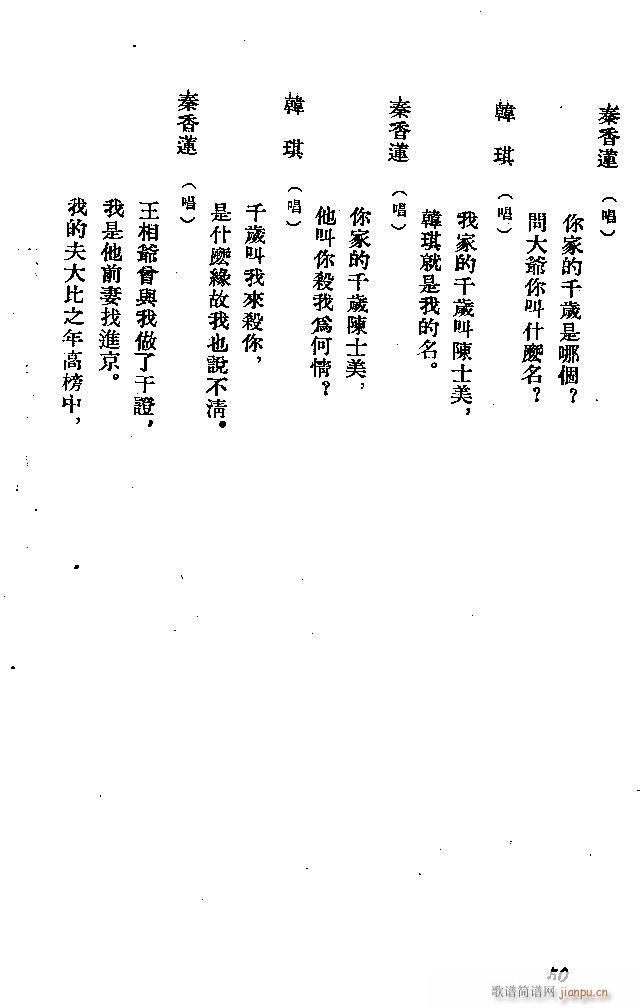 秦香蓮（唱）
你家的千歲是哪個？
問大爺你叫什麽名？
韓琪（唱）
我家的千歲叫陳士美，
韓琪就是我的名。
秦香蓮（唱）
你家的千歲陳士美，
他叫你殺我爲何情？
韓琪（唱）
千歲叫我來殺你，
是什麽緣故我也說不淸。
秦香蓮（唱）
王相爺曾與我做了干證，
我是他前妻找進京。
我的夫大比之年高榜中，
50
歌谱简谱网
jianpu.cn